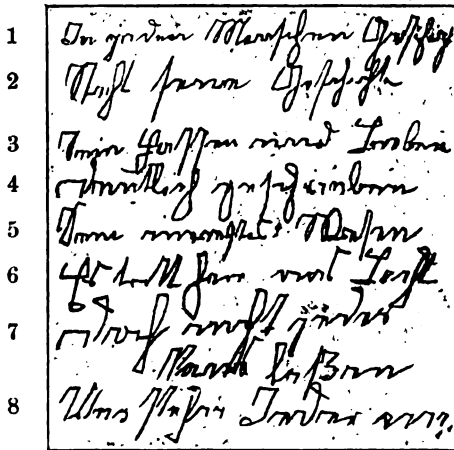 1 In jeden Menschen
2 Steht seine Geschichte
3 Sein Hassen und Lieben
4 Deutlich geschrieben
5 Sein Wesen
6 Es tritt hier ans Licht
7 Doch nicht jeder
Kann
8 Jeder